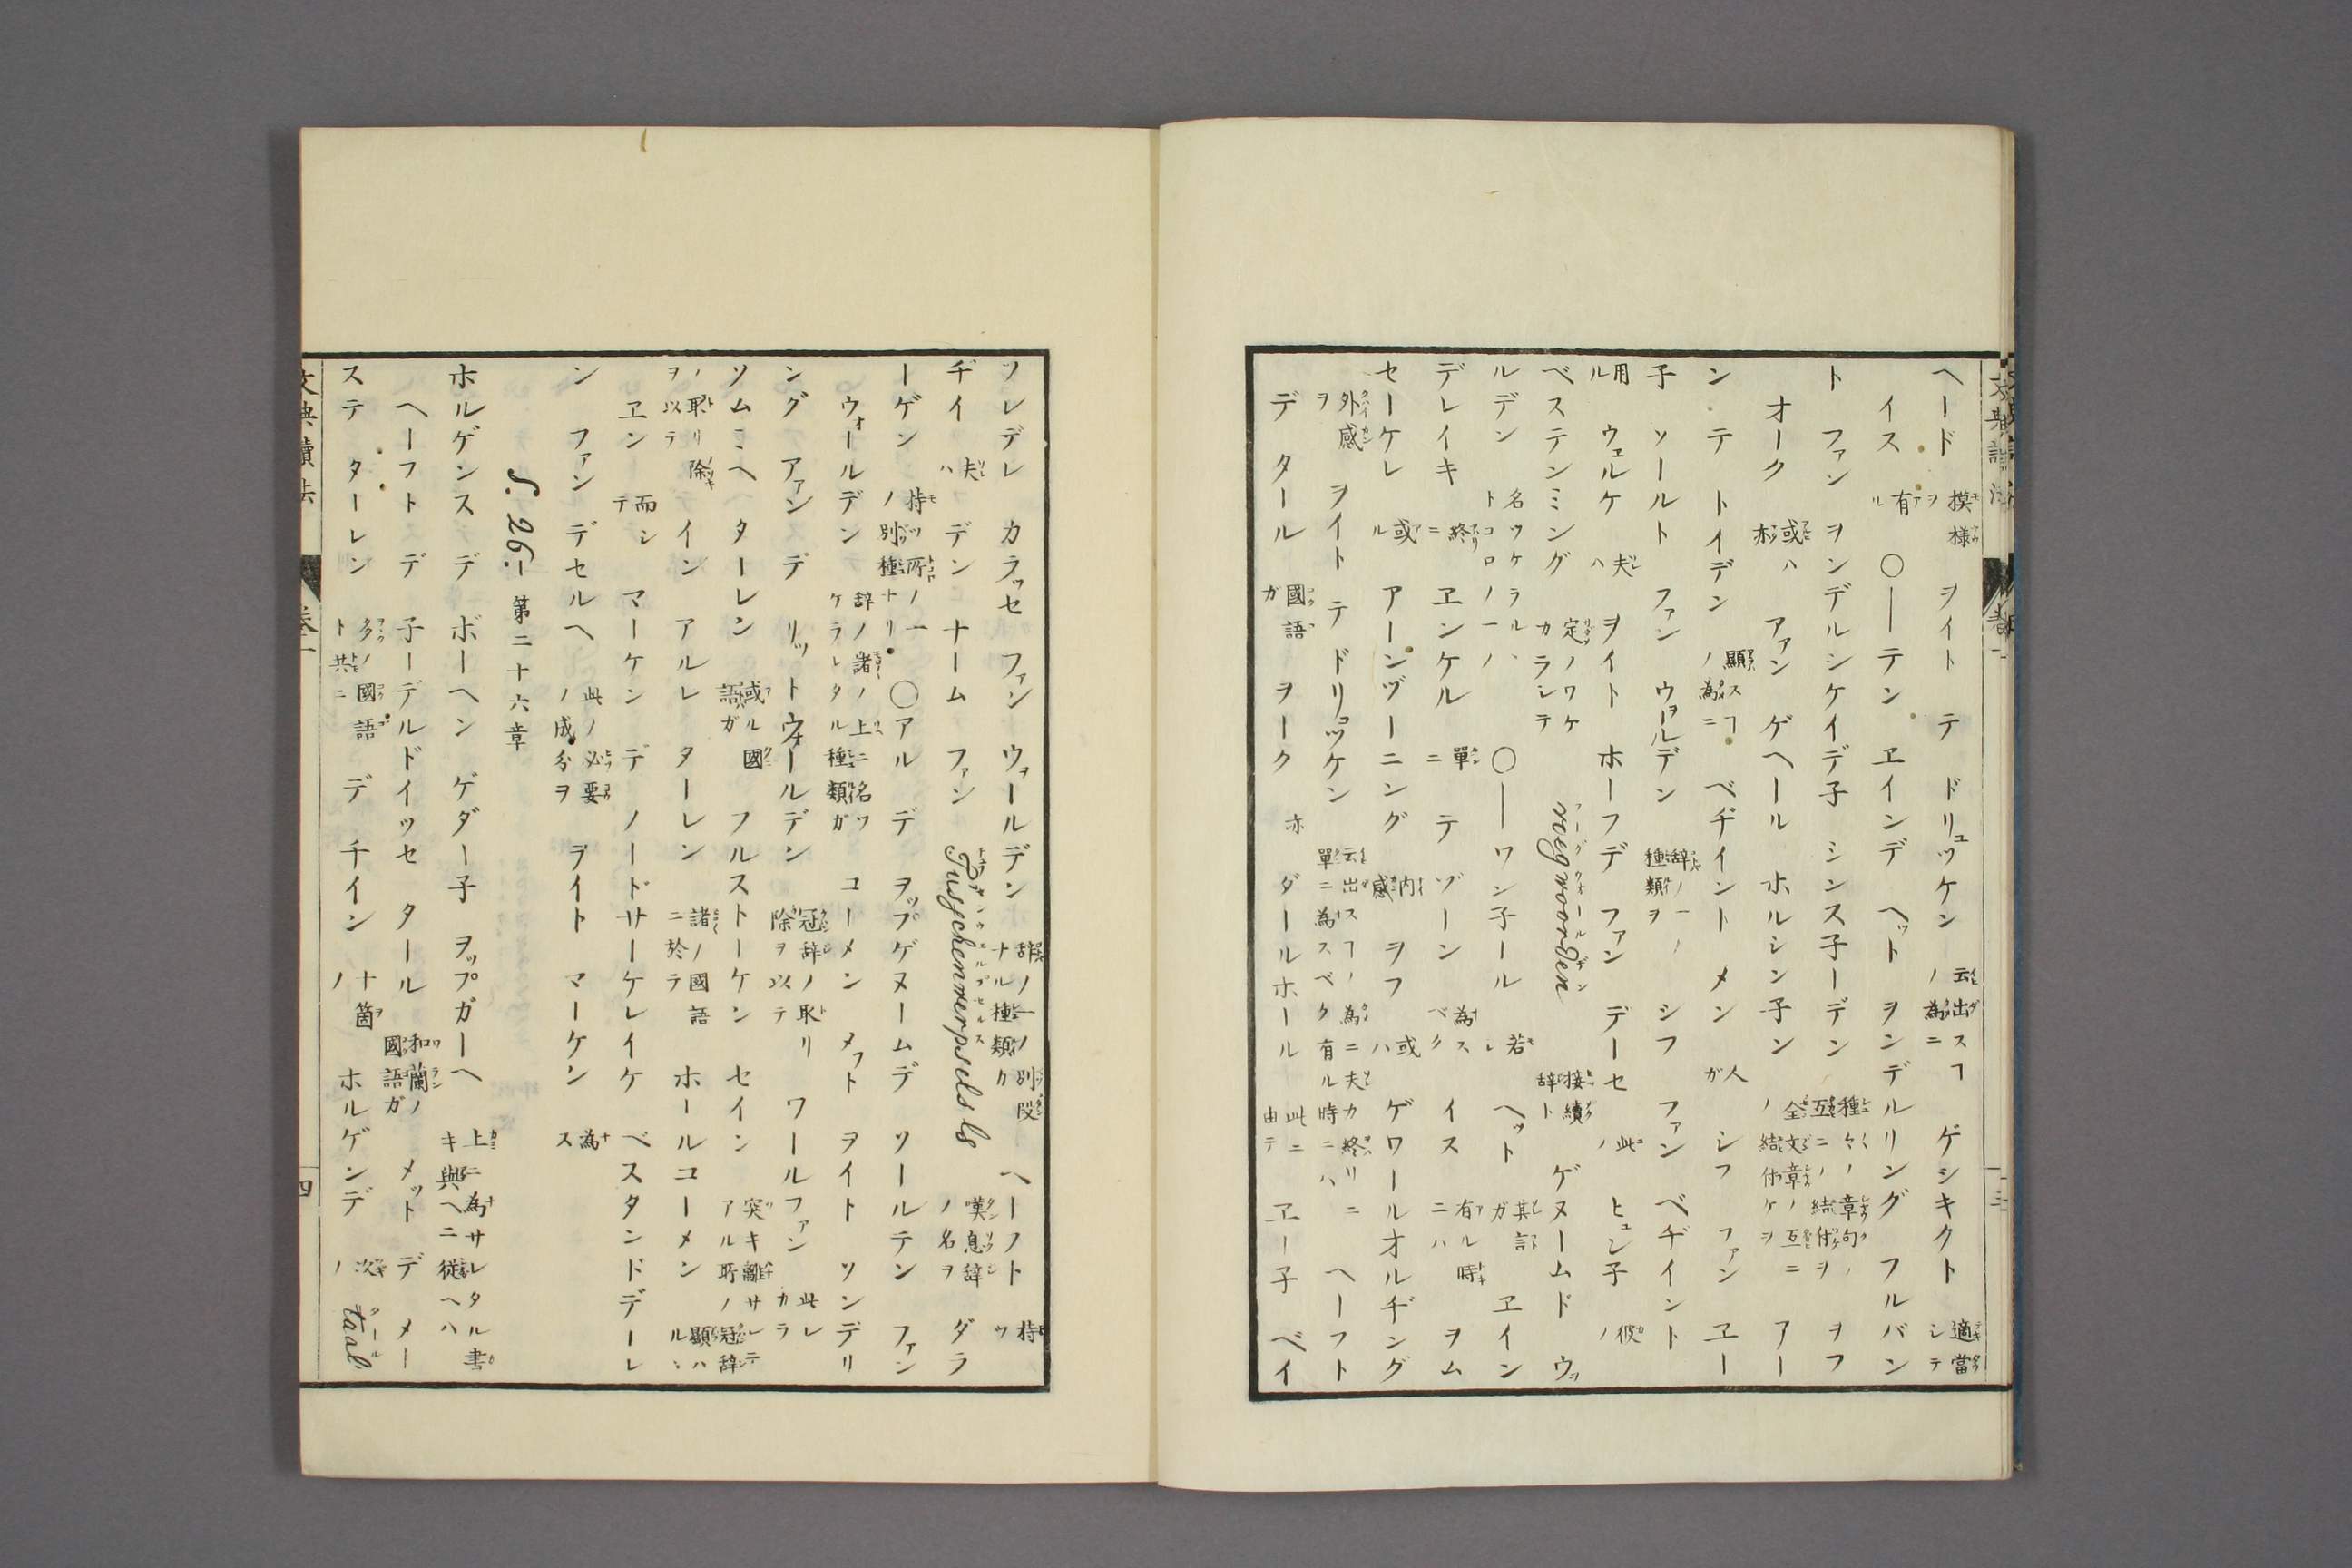 ヘード 模様ヲ ヲイト テ ドリュッケン 云出スヿノ為ニ ゲシキクト 適當シテ
イス 有ル 〇―テン ヱインデ ヘット ヲンデルリング フルバン
ト ファン ヲンデルシケイデ子 シンス子ーデン 種々ノ章句ノ互ニノ結付ヲ ヲフ
オーク 或ハ亦 アァン ゲヘール ホルシン子ン 全文章ノ互ニノ結付ケヲ アー
ンテ トイデン 顕スヿノ為ニ ベヂイント メン 人ガ シフ ファン ヱー
子 ソールト ファン ウヲールデン 辞ノ一ノ種類ヲ シフ ファン ベヂイント
用ル ウェルケ 夫ハ ヲイト ホーフデ ファン デーセ 此ノ ヒュン子 彼ノ
ベステンミング 定ノワケカラシテ voegwoorden 接續辞ト ゲヌームド ウヲ
ルデン 名ツケラルヽトコロノ一ノ 〇―ワン子ール 若レ ヘット 其ガ ヱイン
デレイキ 終ニ ヱンケル 單ニ テ ゾーン 為スベク イス 有ル時ニハ ヲム
セーケレ 或ル アーンヅーニング 内感 ヲフ 或ハ ゲワールオルヂング
外感ヲ ヲイト テ ドリュッケン 云出スヿノ為ニ單ニ為スベク有ル時ニハ夫カ終リニ ヘーフト
デ タール 國語ガ ヲーク 亦 ダールホール 此ニ由テ ヱー子 ベイ
ソレデレ カラッセ ファン ウヲールデン 辞ノ一ノ別段ナル種類カ ヘーフト 持ツ
ヂイ 夫ハ デン ナーム ファン Tusschenwerpsels 嘆息辞ノ名ヲ ダラ
ーゲン 持ツ所ノ一ノ別種ナリ 〇アル デ ヲップゲヌームデ ソールテン ファン
ウォールデン 辞ノ諸ノ上ニ名ツケラレタル種類ガ コーメン メフト ヲイト ソンデリ
ング アァン デ リットウォールデン 冠辞ノ取除ヲ以テ ワールファン 此レカラ
ソムミヘ ターレン 或ル國語ガ フルストーケン セイン 突キ離サレテアル所ノ冠辞
ノ取リ除ヲ以テ イン アルレ ターレン 諸ノ國語ニ於テ ホールコーメン 顕ハルヽ
ヱン 而シテ マーケン デ ノードサーケレイケ ベスタンドデーレ
ン ファン デセルヘ 此ノ必要ノ成分ヲ ライト マーケン 為ス
§. 26. ― 第二十六章
ホルゲンス デ ボーヘン ゲダー子 ヲップガーヘ 上ニ為サレタル書キ與ヘニ従ヘハ
ヘーフト デ 子ーデルドイッセ タール 和蘭ノ國語ガ メット デ メー
ステ ターレン 多ノ國語ト共ニ デ チイン 十箇ノ ホルゲンデ 次ノ taal